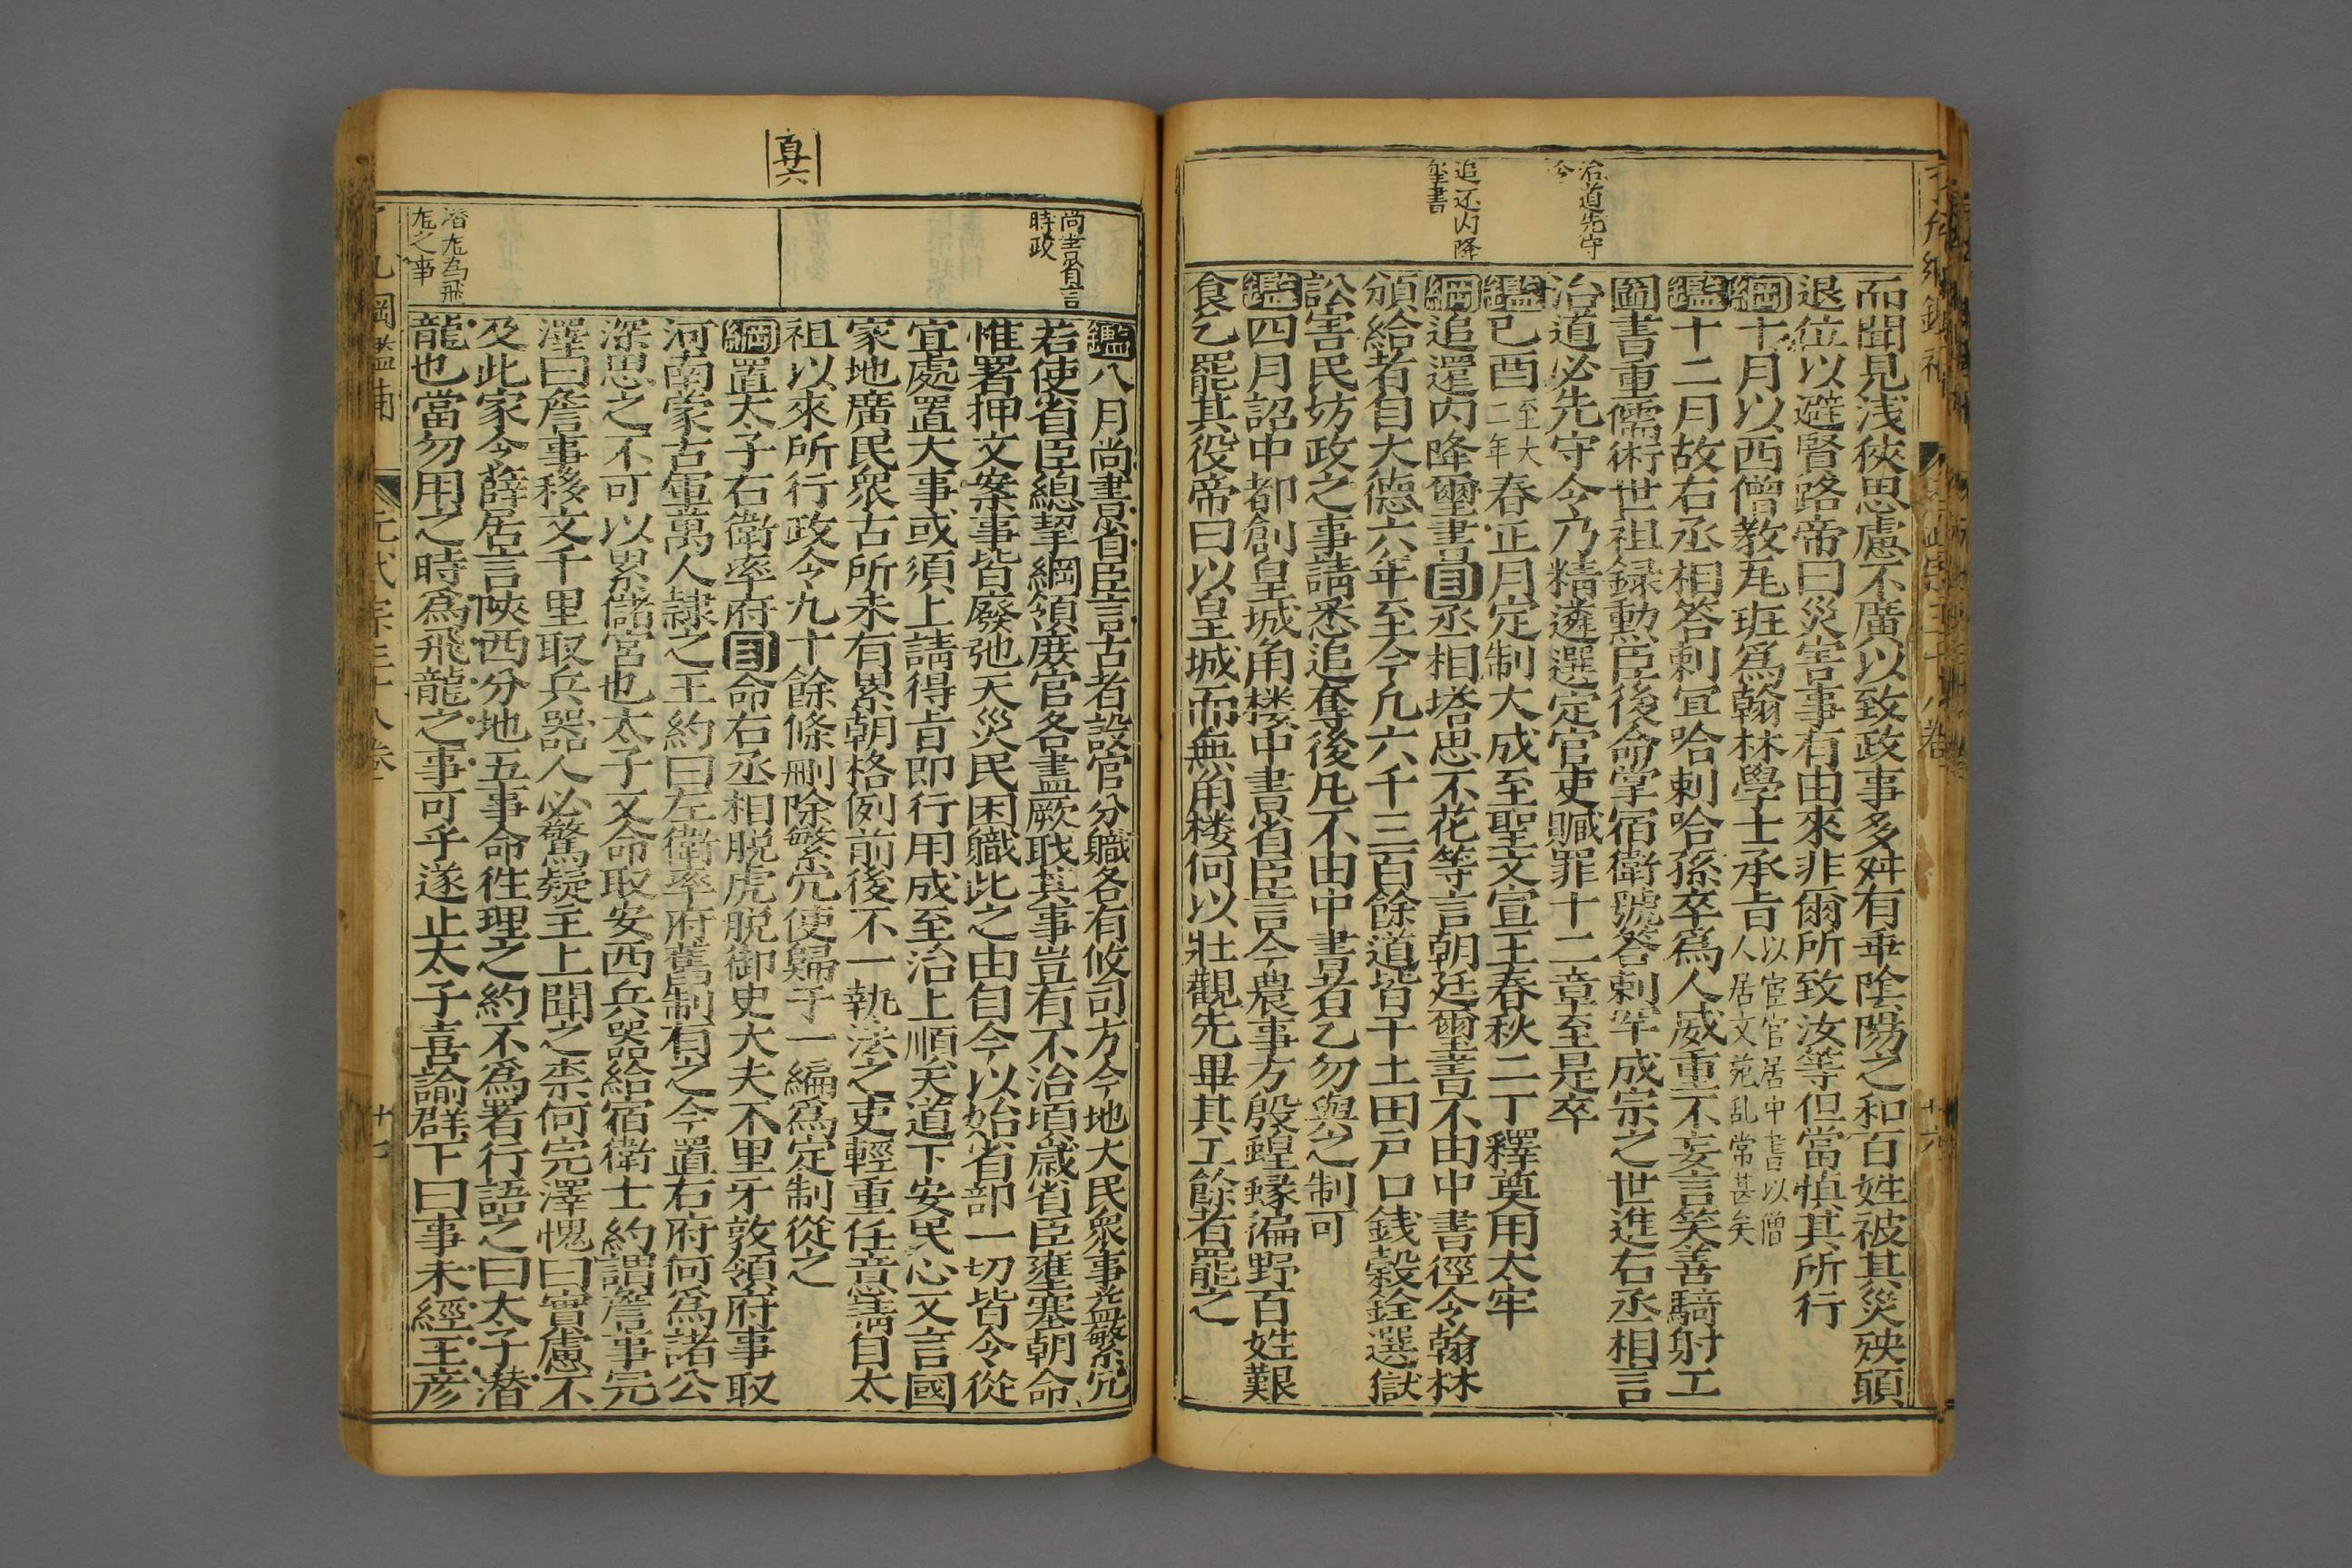 治道先守
令
追还内降
璽書
而聞見浅狹思慮不廣以致政事多舛有乖陰陽之和百姓被其災殃願
退位以避賢路帝曰災害事有由來非爾所致汝等但當慎其所行
綱十月以西僧教瓦班爲翰林學士承旨以宦官居中書以僧人居文苑乱常甚矣
鑑十二月故右丞相答剌罕哈剌哈孫卒爲人威重不妄言笑善騎射工
圖書重儒術世祖録勲臣後命掌宿衛號答剌罕成宗之世進右丞相言
治道必先守令乃精遴選定官吏贓罪十二章至是卒
鑑己酉至大二年春正月定制大成至聖文宣王春秋二丁釋奠用太牢
綱追還内降璽書目丞相塔思不花等言朝廷璽書不由中書徑令翰林
頒給者自大德六年至今凡六千三百餘道皆干土田戸口錢穀銓選獄
訟害民妨政之事請悉追奪後凡不由中書者乞勿與之制可
鑑四月詔中都創皇城角楼中書省臣言今農事方殷蝗蝝徧野百姓艱
食乞罷其役帝曰以皇城而無角楼何以壯觀先畢其工餘者罷之
十六
真六
尚書省言
時政
潜龙為飛
龙之事
鑑八月尚書省臣言古者設官分職各有攸司方今地大民衆事益繁冗
若使省臣總挈綱領庶官各盡厥職其事豈有不治頃歲省臣壅塞朝命
惟署押文案事皆廢弛天災民困職此之由自今以始省部一切皆令從
宜處置大事或須上請得旨即行用成至治上順天道下安民心又言國
家地廣民衆古所未有累朝格例前後不一執法之吏輕重任意請自太
祖以來所行政令九十餘條刪除繁冗使歸于一編爲定制從之
綱置太子右衛率府目命右丞相脱虎脱御史大夫不里牙敦領府事取
河南蒙古軍萬人隷之王約曰左衛率府舊制有之今置右府何爲諸公
深思之不可以累儲宮也太子又命取安西兵器給宿衛士約謂詹事完
澤曰詹事移文千里取兵器人必驚疑主上聞之柰何完澤愧曰實慮不
及此家令薛居言陜西分地五事命徃理之約不爲署行語之曰太子潜
龍也當勿用之時爲飛龍之事可乎遂止太子喜諭群下曰事未經王彦
元代宗三十八卷